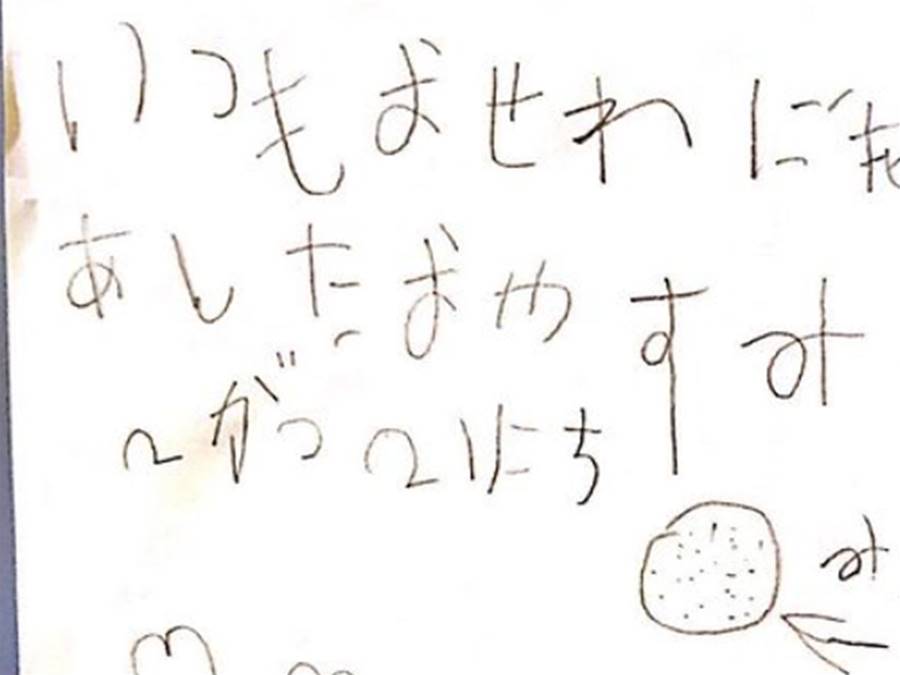 いつもおせわに
あしたおやすみ
2がつ21にち
み